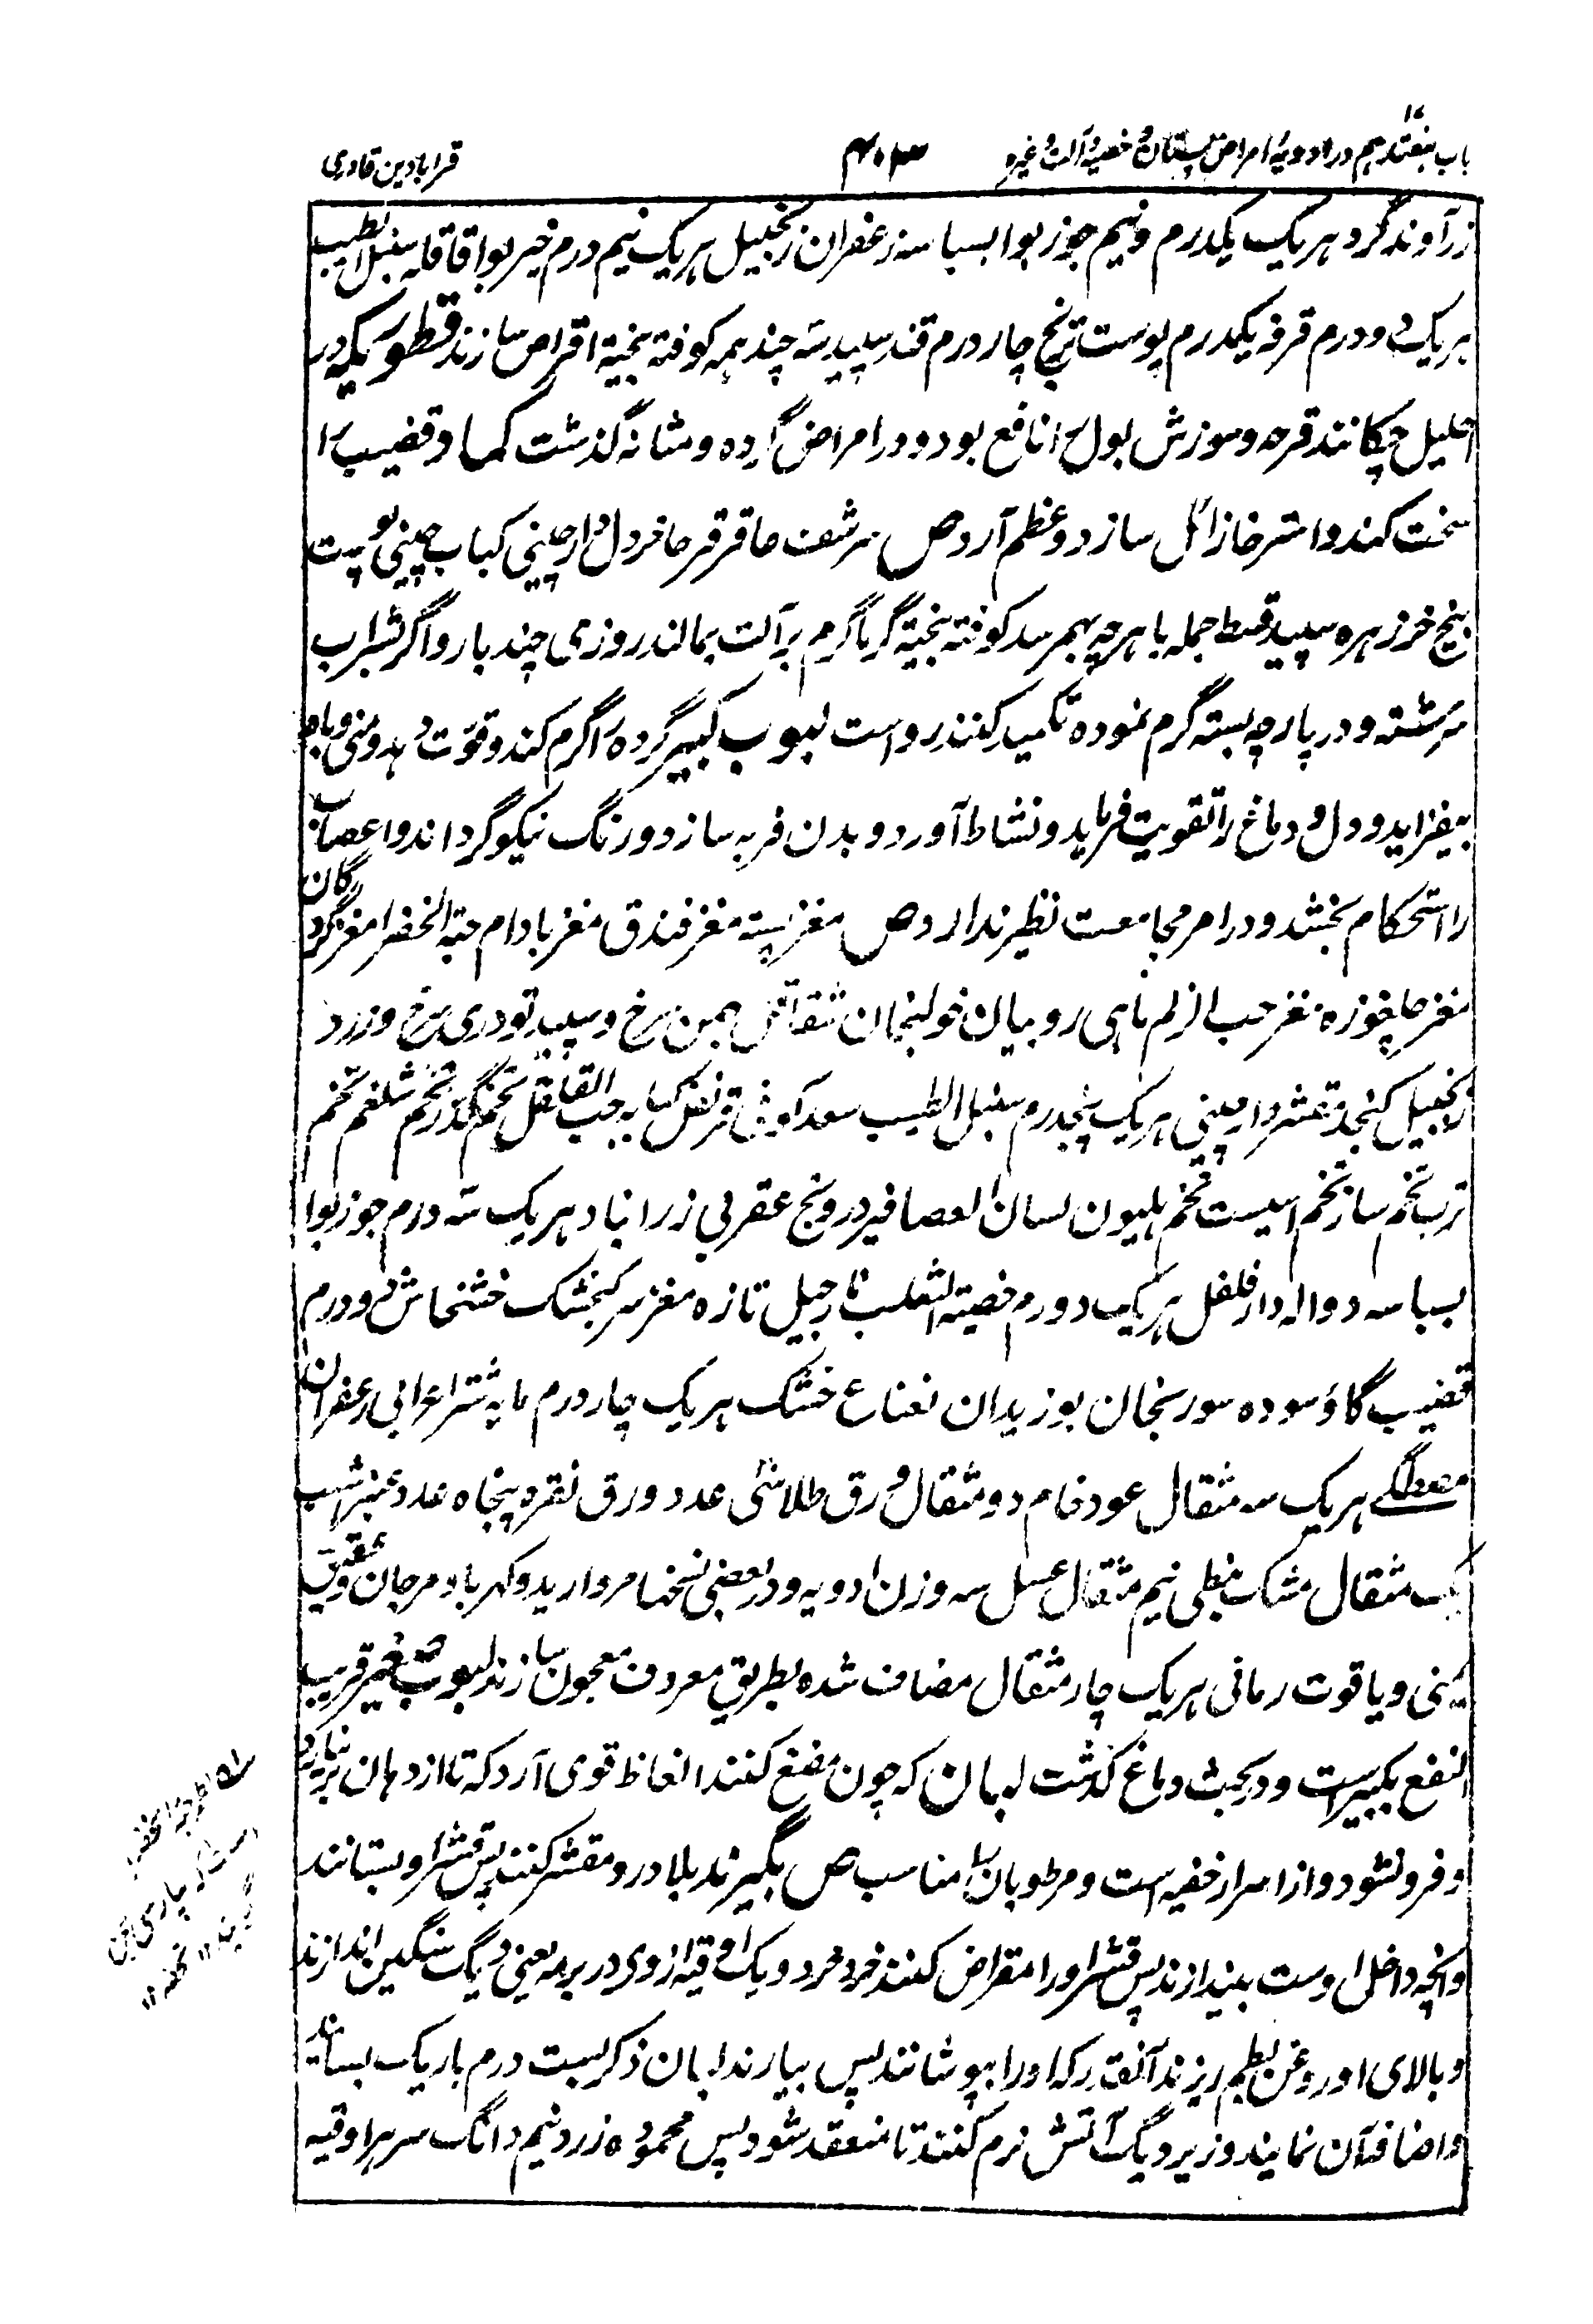 باب هفتدهم در ادویهٔ امراض پستان و خصیه و آلت و غیره
۴۰۳
قرابادین قادری
زراوند گرد هر یک یکدرم و نیم جوز بوا بسباسه زعفران زنجبیل هر یک نیم درم خیر بوا قاقله سنبل الطیب
هر یک دو درم قرفه یکدرم پوست ترنج چار درم قند سپید سه چند همه کوفته بیخته اقراص سازند قطور یکه در
احلیل چکانند قرحه و سوزش بول را نافع بود و در امراض گرده و مثانه گذشت کماد قضیب را
سخت کند و استرخا زائل سازد و عظم آرد ص سرشف عاقرقرحا خردل دارچینی کباب چینی پوست
بیخ خرزهره سپید قسط جمله یا هر چه بهمرسد کوفته بیخته گرماگرم بر آلت بمالند روزی چند بار و اگر بشراب
سرشته و در پارچه بسته گرم نموده تکمید کنند رواست لبوب کبیر گرده را گرم کند و قوت دهد و منی و باه
بیفزاید و دل و دماغ را تقویت فرماید و نشاط آورد و بدن فربه سازد و رنگ نیکو گرداند و اعصاب
را استحکام بخشد و در امر مجامعت نظیر ندارد ص مغز پسته مغز فندق مغز بادام حبة الخضرا مغز گردگان
مغز چلغوزه مغز حب الزلم ماهی روبیان خولنجان شقاقل بهمن سرخ و سپید تودری سرخ و زرد
زنجبیل کنجد مقشر دارچینی هر یک پنجدرم سنبل الطیب سعد کوفی قرنفل کبابه حب القلقل تخم گذر تخم شلغم تخم
ترب تخم پیاز تخم اسپست تخم هلیون لسان العصافیر درونج عقربی زرنباد هر یک سه درم جوز بوا
بسباسه دواله دارفلفل هر یک دو درم خصیة الثعلب نارجیل تازه مغز سر کنجشک خشخاش دو درم
قضیب گاؤ سوده سورنجان بوزیدان نعناع خشک هر یک چار درم مایه شتر اعرابی زعفران
مصطگے هر یک سه مثقال عود خام دو مثقال ورق طلا سی عدد ورق نقره پنجاه عدد عنبر اشهب
یک مثقال مشک نیم مثقال عسل سه وزن ادویه و در بعضی نسخها مروارید و کهربا و مرجان و عقیق
یمنی و یاقوت رمانی هر یک چار مثقال مضاف شده بطریق معروف معجون سازند لبوب صغیر قریب
النفع بکبیر است و در بحث دماغ گذشت لبان که چون مضغ کنند انعاظ قوی آرد که تا از دهان بر نیارد
و فرو نشود و از اسرار خفیه است و مرطوبان را مناسب ص بگیرند بلادر و مقشر کنند پس قشر او بستانند
و آنچه داخل اوست بیندازند پس قشر او را مقراض کنند خرد خرد و یک اوقیه ازوی در برمه یعنی دیگ سنگین اندازند
و بالای او روغن بطم ریزند آنقدر که او را بپوشانند پس بیارند لبان ذکر بیست درم باریک بسایند
و اضافه آن نمایند و زیر دیگ آتش نرم کنند تا منعقد شود پس محموده زرد نیم دانگ سر هر اوقیه